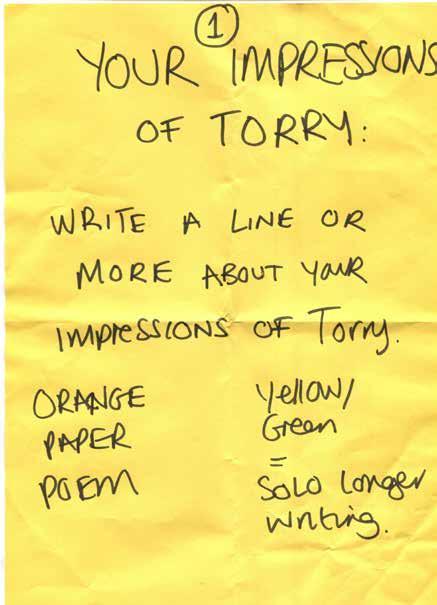 1
YOUR IMPRESSIONS
OF TORRY:
WRITE A LINE OR
MORE ABOUT YOUR
IMPRESSIONS OF Torry.
ORANGE
PAPER
POEM
Yellow/
Green
=
SOLO longer
writing.